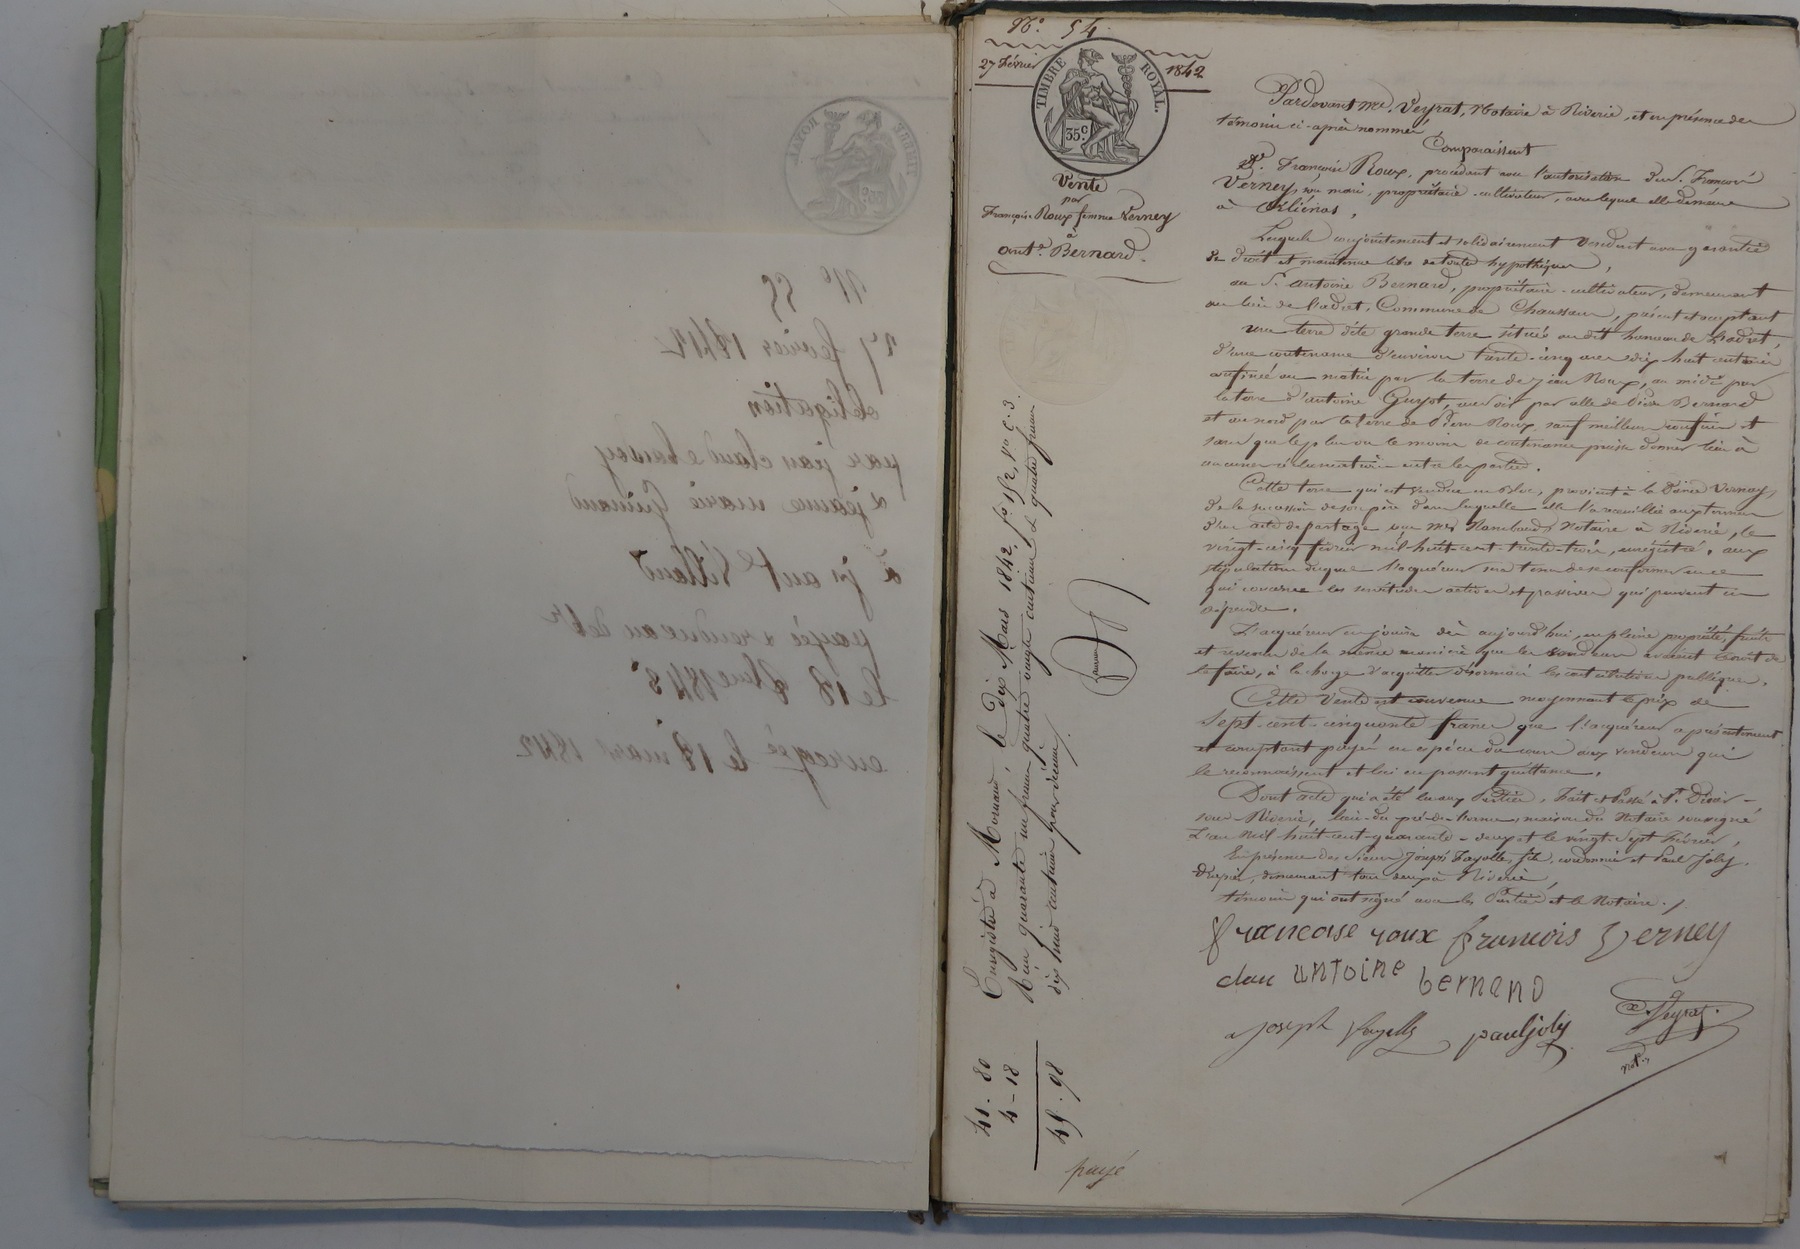 N.° 54.
27 Février 1842
TIMBRE ROYAL.
35 c.
Vente
par
Françoise Roux femme Verney
à
ant.e Bernard.
Pardevant me. Veyrat, Notaire à Riverie, et en présence des
témoins ci-après nommés,
Comparaissent
De. Françoise Roux, procédant sous l'autorisation du S. François
Verney, son mari, propriétaire-cultivateur, avec lequel elle demeure
à Orliénas,
Lesquels conjointement et solidairement vendent avec garantie
de droit et maintenue libre de toutes hypothèques,
au S. antoine Bernard, propriétaire-cultivateur, demeurant
au lieu de l'adret, Commune de Chaussan, présent et acceptant
une terre dite grande terre située au dit hameau de L'adret,
d'une contenance d'environ trente-cinq ares dix huit centiares
confinée au matin par la terre de Jean Roux, au midi par
la terre d'antoine Guyot, au soir par celle de Bernard
et au nord par la terre de Pierre Roux, sauf meilleurs confins et
sans que le plus ou le moins de contenance puisse donner lieu à
aucunes réclamations entre les parties.
Cette terre qui est vendue en Bloc, provient à la Dame Verney,
de la succession de son père dans laquelle elle l'a recueillie aux termes
d'un acte de partage reçu Me Rambaud, Notaire à Riverie, le
vingt-cinq février mil-huit-cent-trente-trois, enregistré, aux
stipulations duquel l'acquéreur sera tenu de se conformer en ce
qui concerne les servitudes actives et passives qui peuvent en
dépendre.
L'acquéreur en jouira dès aujourd'hui, en pleine propriété, fruits
et revenus de la même manière que les vendeurs avaient droit de
le faire, à la charge d'acquitter désormais les contributions publiques.
Cette Vente est convenue moyennant le prix de
Sept-cent-cinquante francs que l'acquéreur a présentement
et comptant payés en espèces du cours aux vendeurs qui
le reconnaissent et lui en passent quittance.
Dont acte qui a été lu aux Parties, Fait et Passé à St. Didier-
sous-Riverie, lieu-du-pré-de- maison du Notaire soussigné
L'an mil-huit-cent-quarante-deux et le vingt-sept Février,
En présence des Sieurs Joseph Fayolle, fils, cordonnier et Paul Joly,
drapier, demeurant tous deux à Riverie,
témoins qui ont signé avec les Parties et le Notaire./.
francoise roux francois Verney
antoine bernard
Joseph Fayolle paul joly
Veyrat.
not.re
Enregistré à Mornant, le dix Mars 1842, f° 152, v° c. 3.
Reçu quarante un francs quatre vingts centimes et quatre francs
dix huit centimes pour décime./.
41. 80
4 - 18
45. 98
payé
N° 55
27 fevrier 1842
obligation
par jean claude
& jeanne marie
payée
le 18 1848
le 18 mars 1842